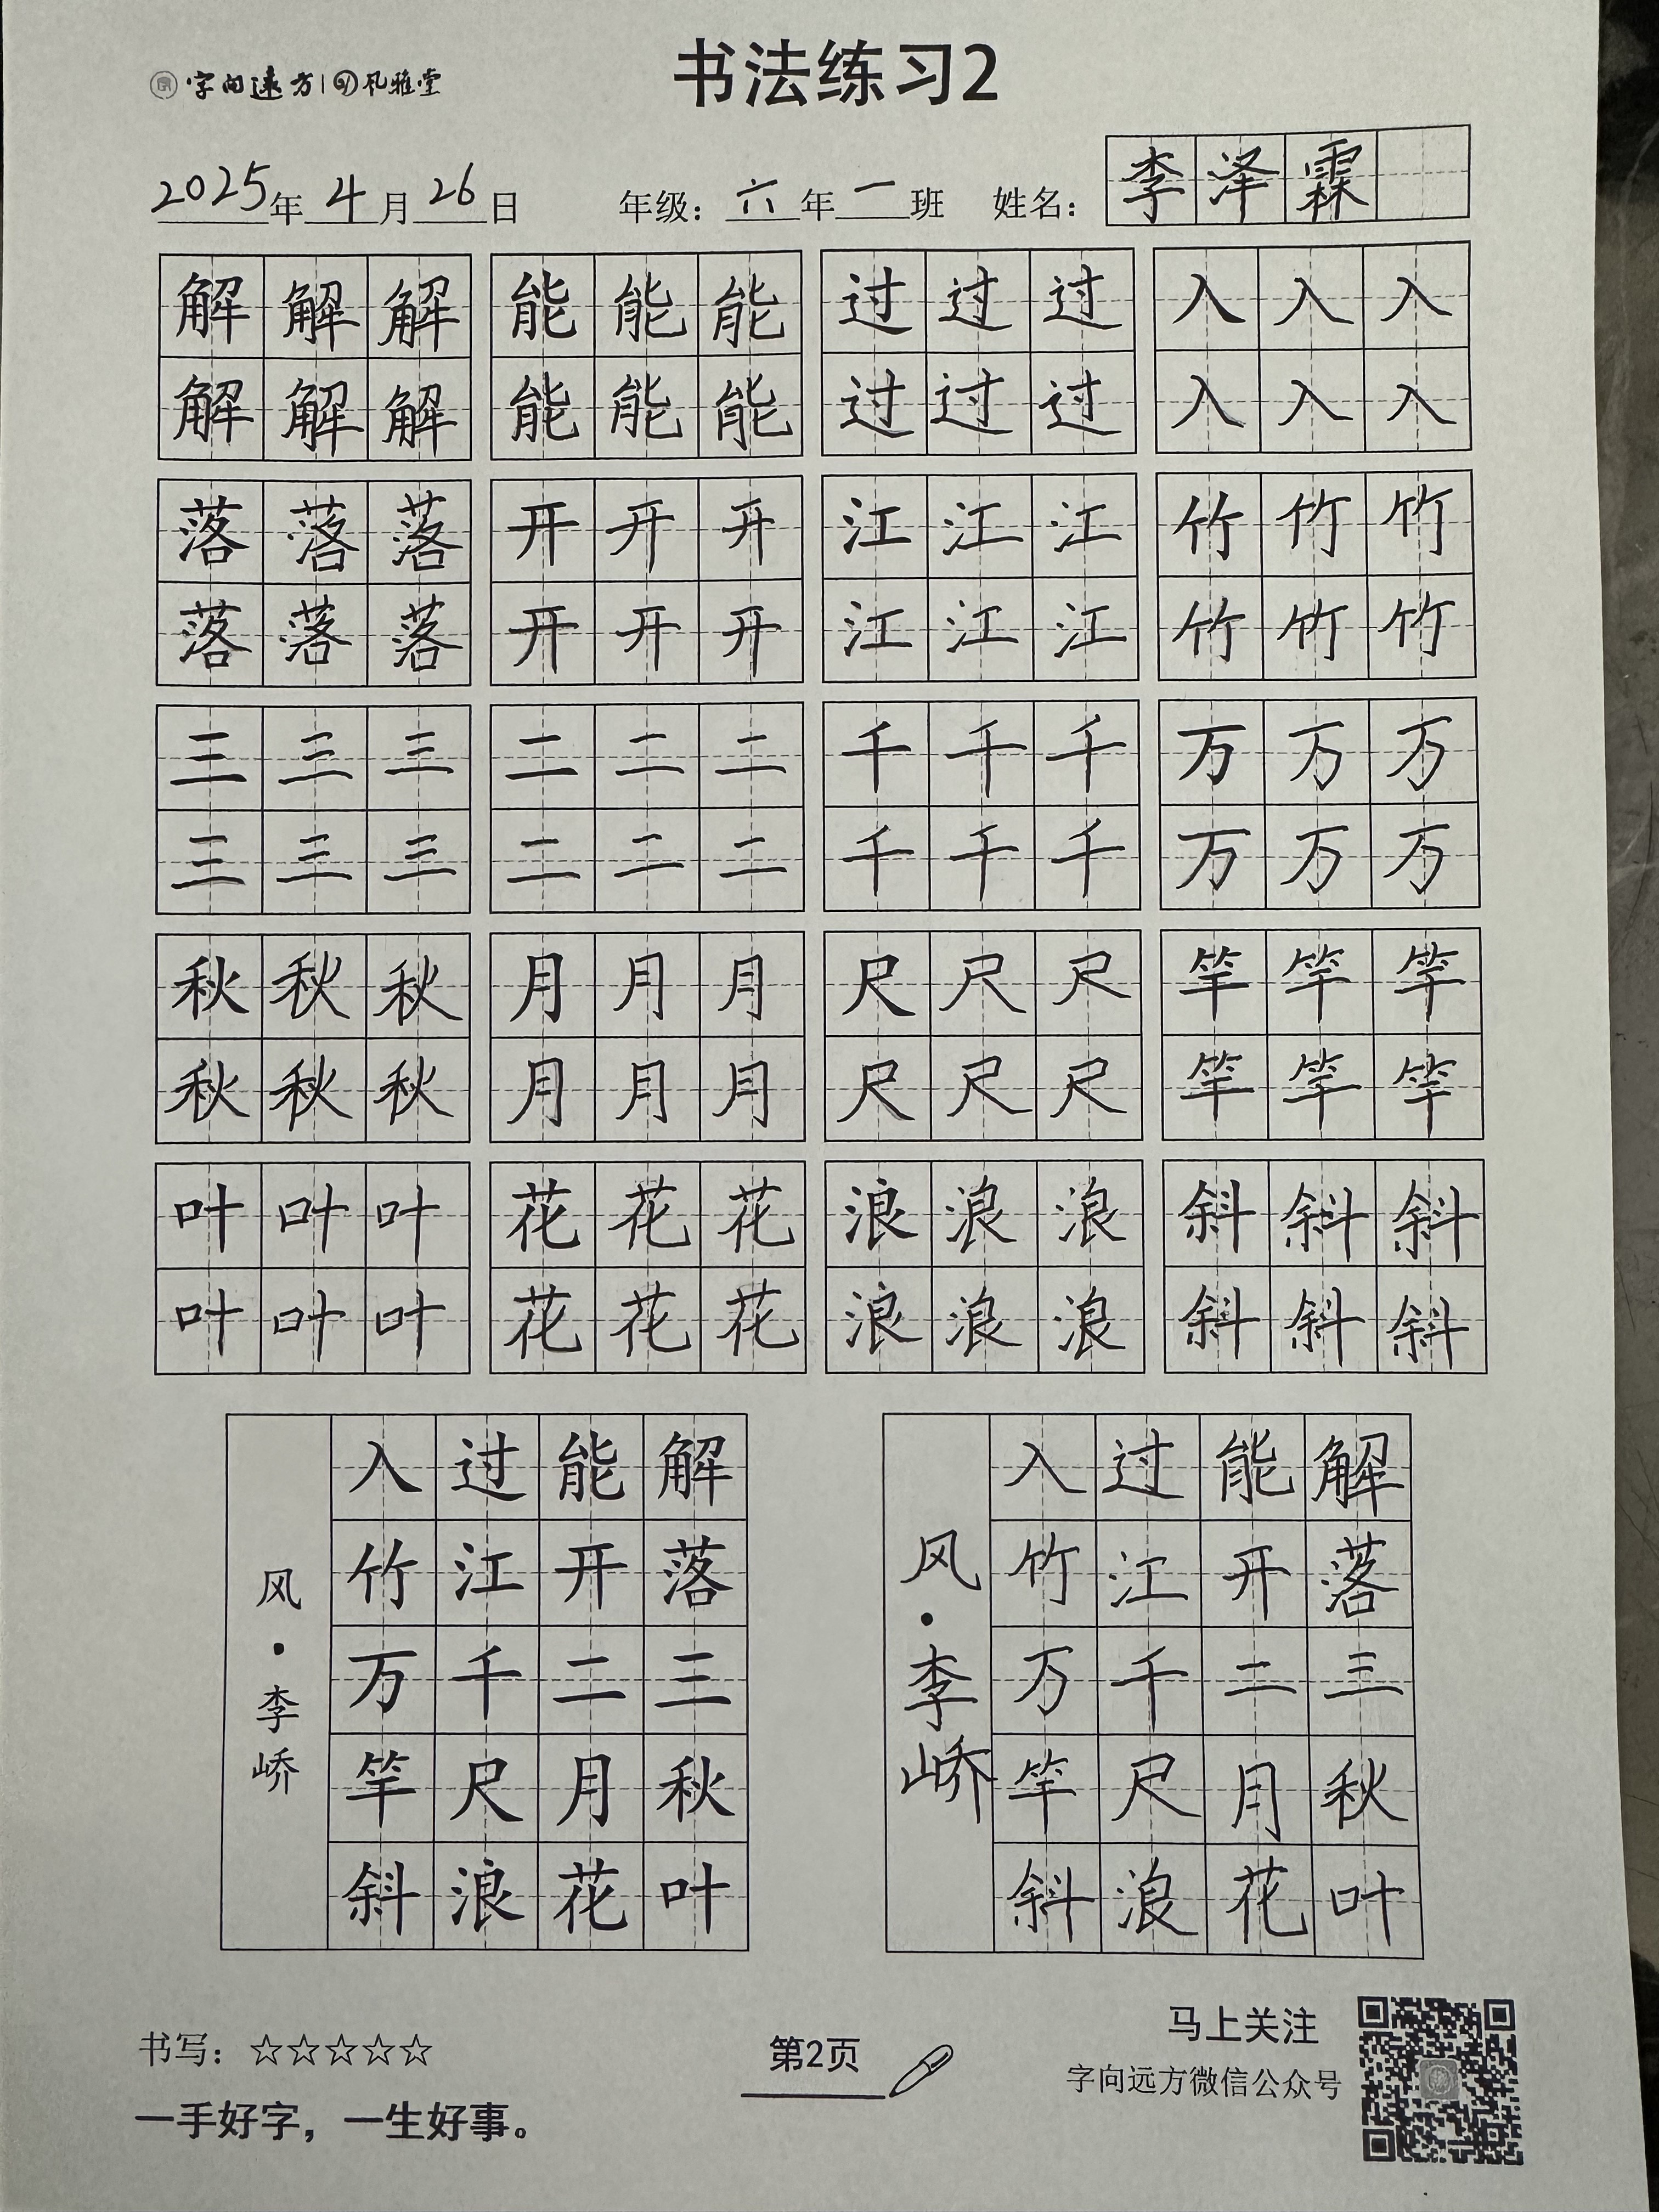 字向远方 风雅堂
书法练习2
2025年4月26日 年级：六年一班 姓名：李泽霖
解解解 能能能 过过过 入入入
解解解 能能能 过过过 入入入
落落落 开开开 江江江 竹竹竹
落落落 开开开 江江江 竹竹竹
三三三 二二二 千千千 万万万
三三三 二二二 千千千 万万万
秋秋秋 月月月 尺尺尺 竿竿竿
秋秋秋 月月月 尺尺尺 竿竿竿
叶叶叶 花花花 浪浪浪 斜斜斜
叶叶叶 花花花 浪浪浪 斜斜斜
解落三秋叶
能开二月花
过江千尺浪
入竹万竿斜
风·李峤
解落三秋叶
能开二月花
过江千尺浪
入竹万竿斜
风·李峤
书写：☆☆☆☆☆
一手好字，一生好事。
第2页
马上关注
字向远方微信公众号